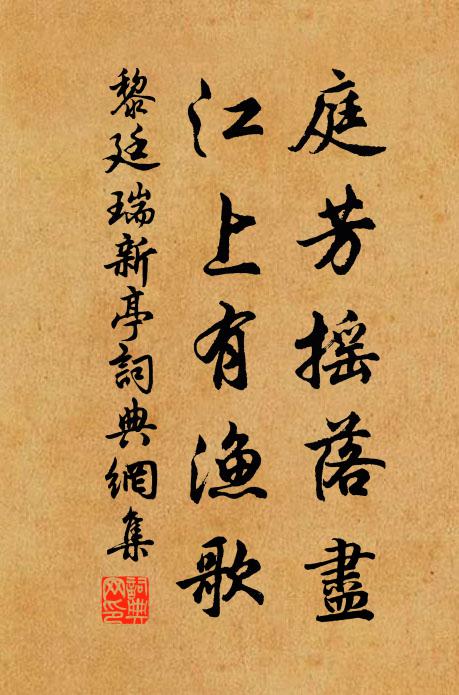 庭芳摇落盡
江上有漁歌
黎廷瑞新亭詞典網集
詞典网印